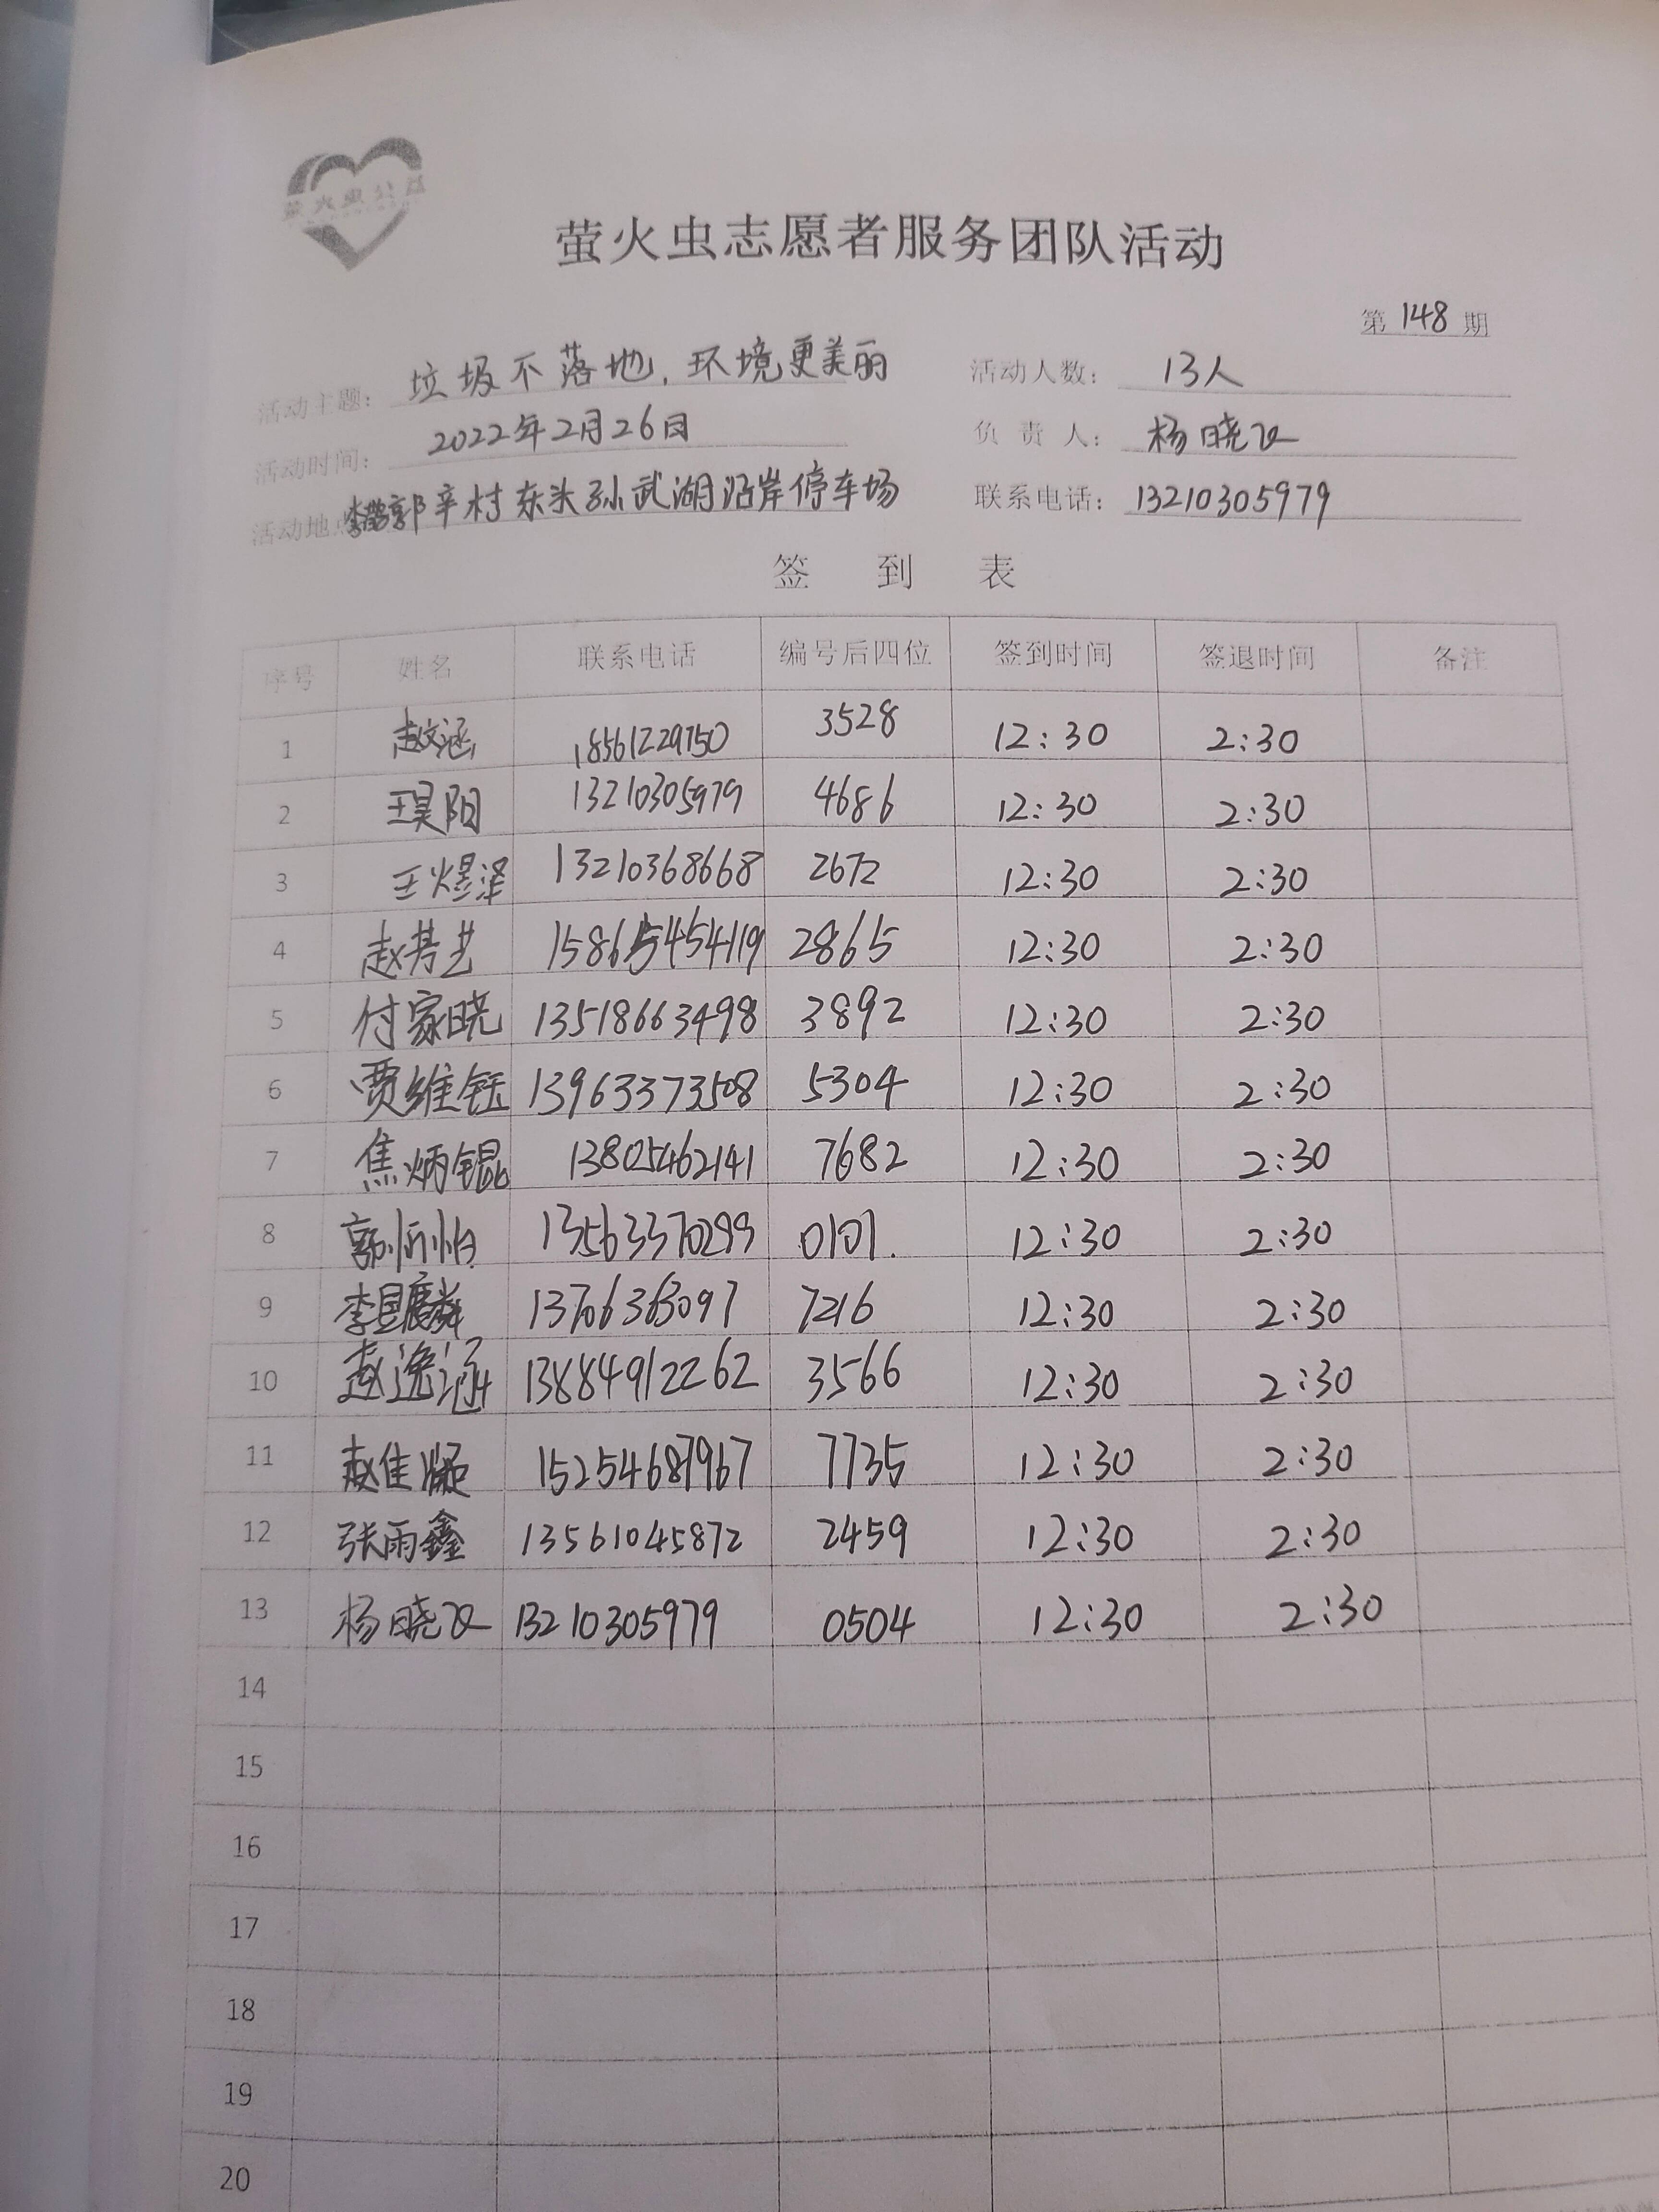 萤火虫公益
萤火虫志愿者服务团队活动
第 148 期
活动主题： 垃圾不落地，环境更美丽 活动人数： 13人
活动时间： 2022年2月26日 负责人： 杨晓
活动地点 郭辛村东头孙武湖沿岸停车场 联系电话： 13210305979
签 到 表
序号 姓名 联系电话 编号后四位 签到时间 签退时间 备注
1 赵文涵 18561229750 3528 12:30 2:30
2 王昊阳 13210305979 4686 12:30 2:30
3 王煜泽 13210368668 2672 12:30 2:30
4 赵芳艺 2865 12:30 2:30
5 付家晓 13518663498 3892 12:30 2:30
6 贾维钰 13963373508 5304 12:30 2:30
7 焦炳锟 13805462141 7682 12:30 2:30
8 郭忻怡 13563370299 0101. 12:30 2:30
9 李昱麟 7216 12:30 2:30
10 赵逸涵 13884912262 3566 12:30 2:30
11 赵佳 15254687967 7735 12:30 2:30
12 张雨鑫 13561045872 2459 12:30 2:30
13 杨晓 13210305979 0504 12:30 2:30
14
15
16
17
18
19
20